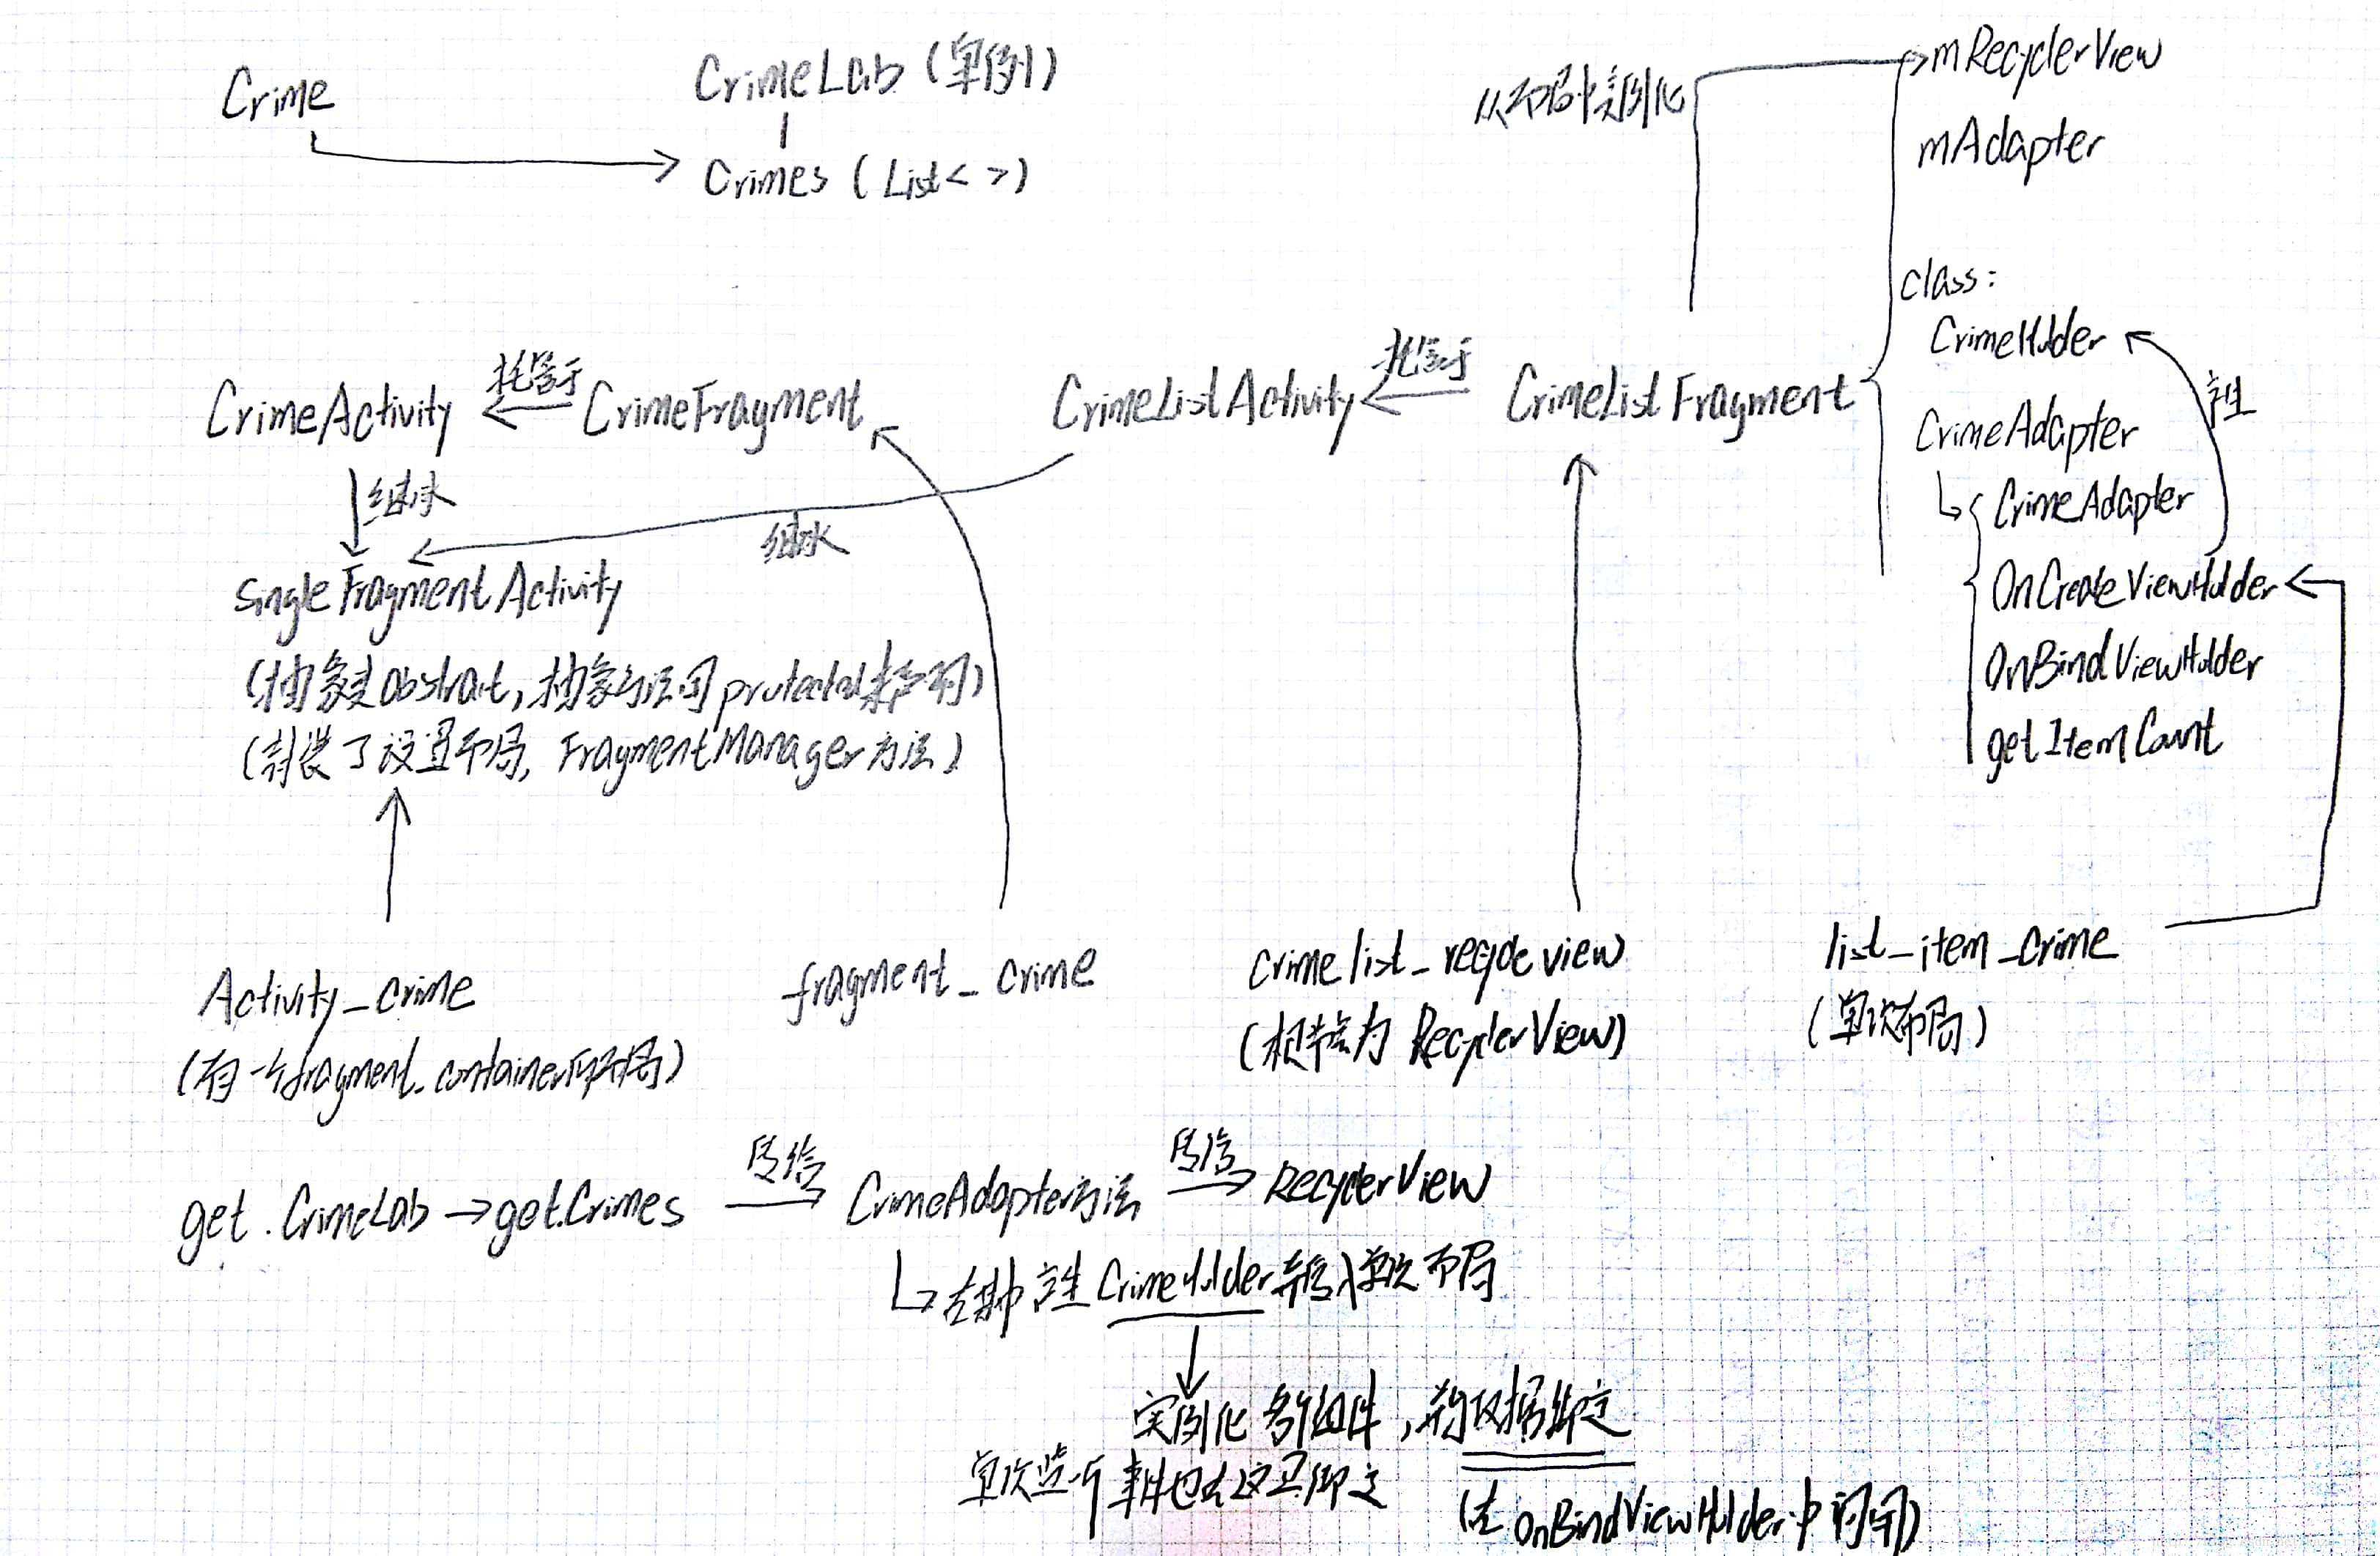 Crime
CrimeLab (单例)
Crimes (List< >)
从布局中实例化
mRecyclerView
mAdapter
class:
CrimeHolder
CrimeAdapter
CrimeAdapter
OnCreateViewHolder
OnBindViewHolder
getItemCount
CrimeActivity
托管于
CrimeFragment
CrimeListActivity
托管于
CrimeListFragment
继承
继承
SingleFragmentActivity
(抽象类abstract, 抽象方法用protected来
(封装了设置布局, FragmentManager方法)
Activity_crime
(有一个fragment_container的布局)
fragment_crime
crimelist_recycleview
(根节点为 RecyclerView)
list_item_crime
(单次布局)
get.CrimeLab → get.Crimes
传给
CrimeAdapter方法
传给
RecyclerView
在其中 CrimeHolder 单次布局
实例化 各个组件, 数据绑定
单次监听事件也在这里绑定
(在 OnBindViewHolder中调用)